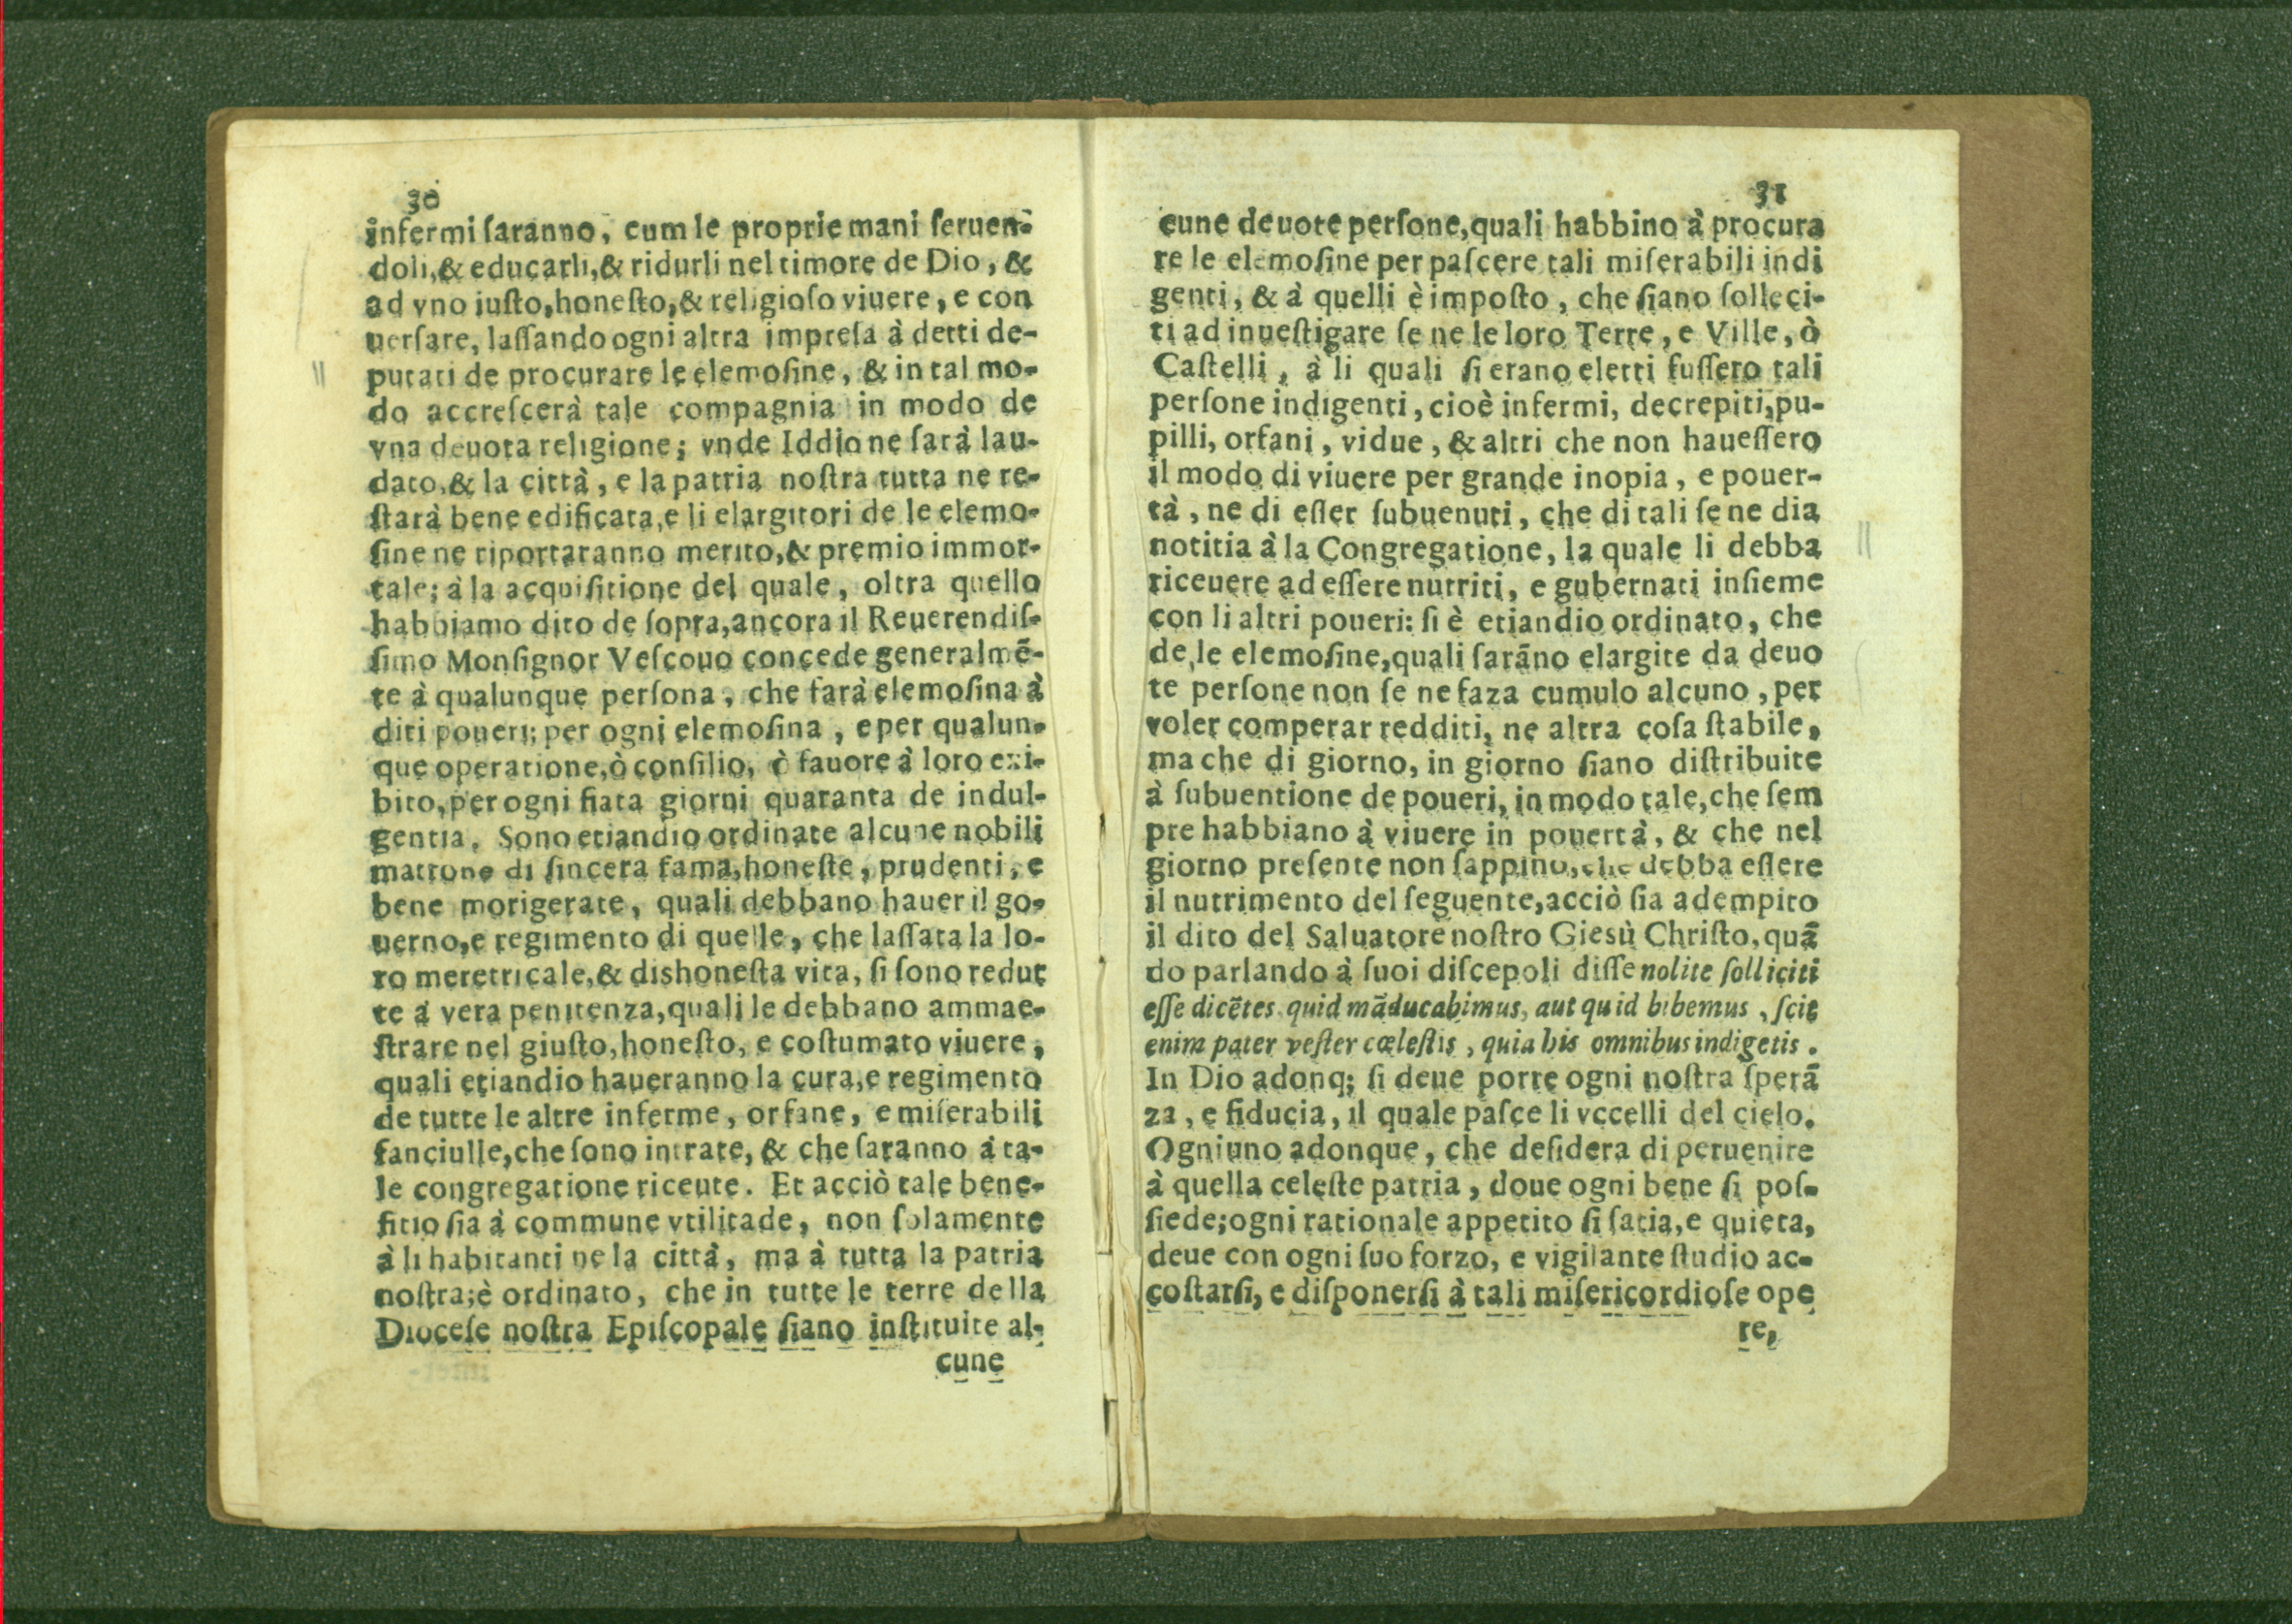 30
infermi ſaranno, cum le proprie mani ſeruen-
doli,& educarli,& ridurli nel timore de Dio, &
ad vno iuſto,honeſto,& religioſo viuere, e con
uerſare, laſſando ogni altra impreſa à detti de-
putati de procurare le elemoſine, & in tal mo-
do accreſcerà tale compagnia in modo de
vna deuota religione; vnde Iddio ne ſarà lau-
dato,& la città, e la patria noſtra tutta ne re-
ſtarà bene edificata,e li elargitori de le elemo-
ſine ne riportaranno merito,& premio immor-
tale; à la acquiſitione del quale, oltra quello
habbiamo dito de ſopra,ancora il Reuerendiſ-
ſimo Monſignor Veſcouo concede generalmē-
te à qualunque perſona, che farà elemoſina à
diti poueri; per ogni elemoſina, e per qualun-
que operatione,ò conſilio, ò fauore à loro exi-
bito,per ogni fiata giorni quaranta de indul-
gentia. Sono etiandio ordinate alcune nobili
matrone di ſincera fama,honeſte, prudenti, e
bene morigerate, quali debbano hauer il go-
uerno,e regimento di quelle, che laſſata la lo-
ro meretricale,& dishoneſta vita, ſi ſono redut
te à vera penitenza,quali le debbano ammae-
ſtrare nel giuſto,honeſto, e coſtumato viuere,
quali etiandio haueranno la cura,e regimento
de tutte le altre inferme, orfane, e miſerabili
fanciulle,che ſono intrate, & che ſaranno à ta-
le congregatione riceute. Et acciò tale bene-
fitio ſia à commune vtilitade, non ſolamente
à li habitanti ne la città, ma à tutta la patria
noſtra;è ordinato, che in tutte le terre della
Dioceſe noſtra Epiſcopale ſiano inſtituite al-
cune
31
cune deuote perſone,quali habbino à procura
re le elemoſine per paſcere tali miſerabili indi
genti, & à quelli è impoſto, che ſiano ſolleci-
ti ad inueſtigare ſe ne le loro Terre, e Ville, ò
Caſtelli, à li quali ſi erano eletti fuſſero tali
perſone indigenti, cioè infermi, decrepiti,pu-
pilli, orfani, vidue, & altri che non haueſſero
il modo di viuere per grande inopia, e pouer-
tà, ne di eſſer ſubuenuti, che di tali ſe ne dia
notitia à la Congregatione, la quale li debba
riceuere ad eſſere nutriti, e gubernati inſieme
con li altri poueri: ſi è etiandio ordinato, che
de le elemoſine,quali ſarāno elargite da deuo
te perſone non ſe ne faza cumulo alcuno, per
voler comperar redditi, ne altra coſa ſtabile,
ma che di giorno, in giorno ſiano diſtribuite
à ſubuentione de poueri, in modo tale,che ſem
pre habbiano à viuere in pouertà, & che nel
giorno preſente non ſappino,che debba eſſere
il nutrimento del ſeguente,acciò ſia adempito
il dito del Saluatore noſtro Gieſù Chriſto,quā
do parlando à ſuoi diſcepoli diſſe nolite ſolliciti
eſſe dicētes quid māducabimus, aut quid bibemus, ſcit
enim pater veſter cœleſtis, quia his omnibus indigetis.
In Dio adonq; ſi deue porre ogni noſtra ſperā
za, e fiducia, il quale paſce li vccelli del cielo.
Ogniuno adonque, che deſidera di peruenire
à quella celeſte patria, doue ogni bene ſi poſ-
ſiede;ogni rationale appetito ſi ſatia,e quieta,
deue con ogni ſuo forzo, e vigilante ſtudio ac-
coſtarſi, e diſponerſi à tali miſericordioſe ope
re,